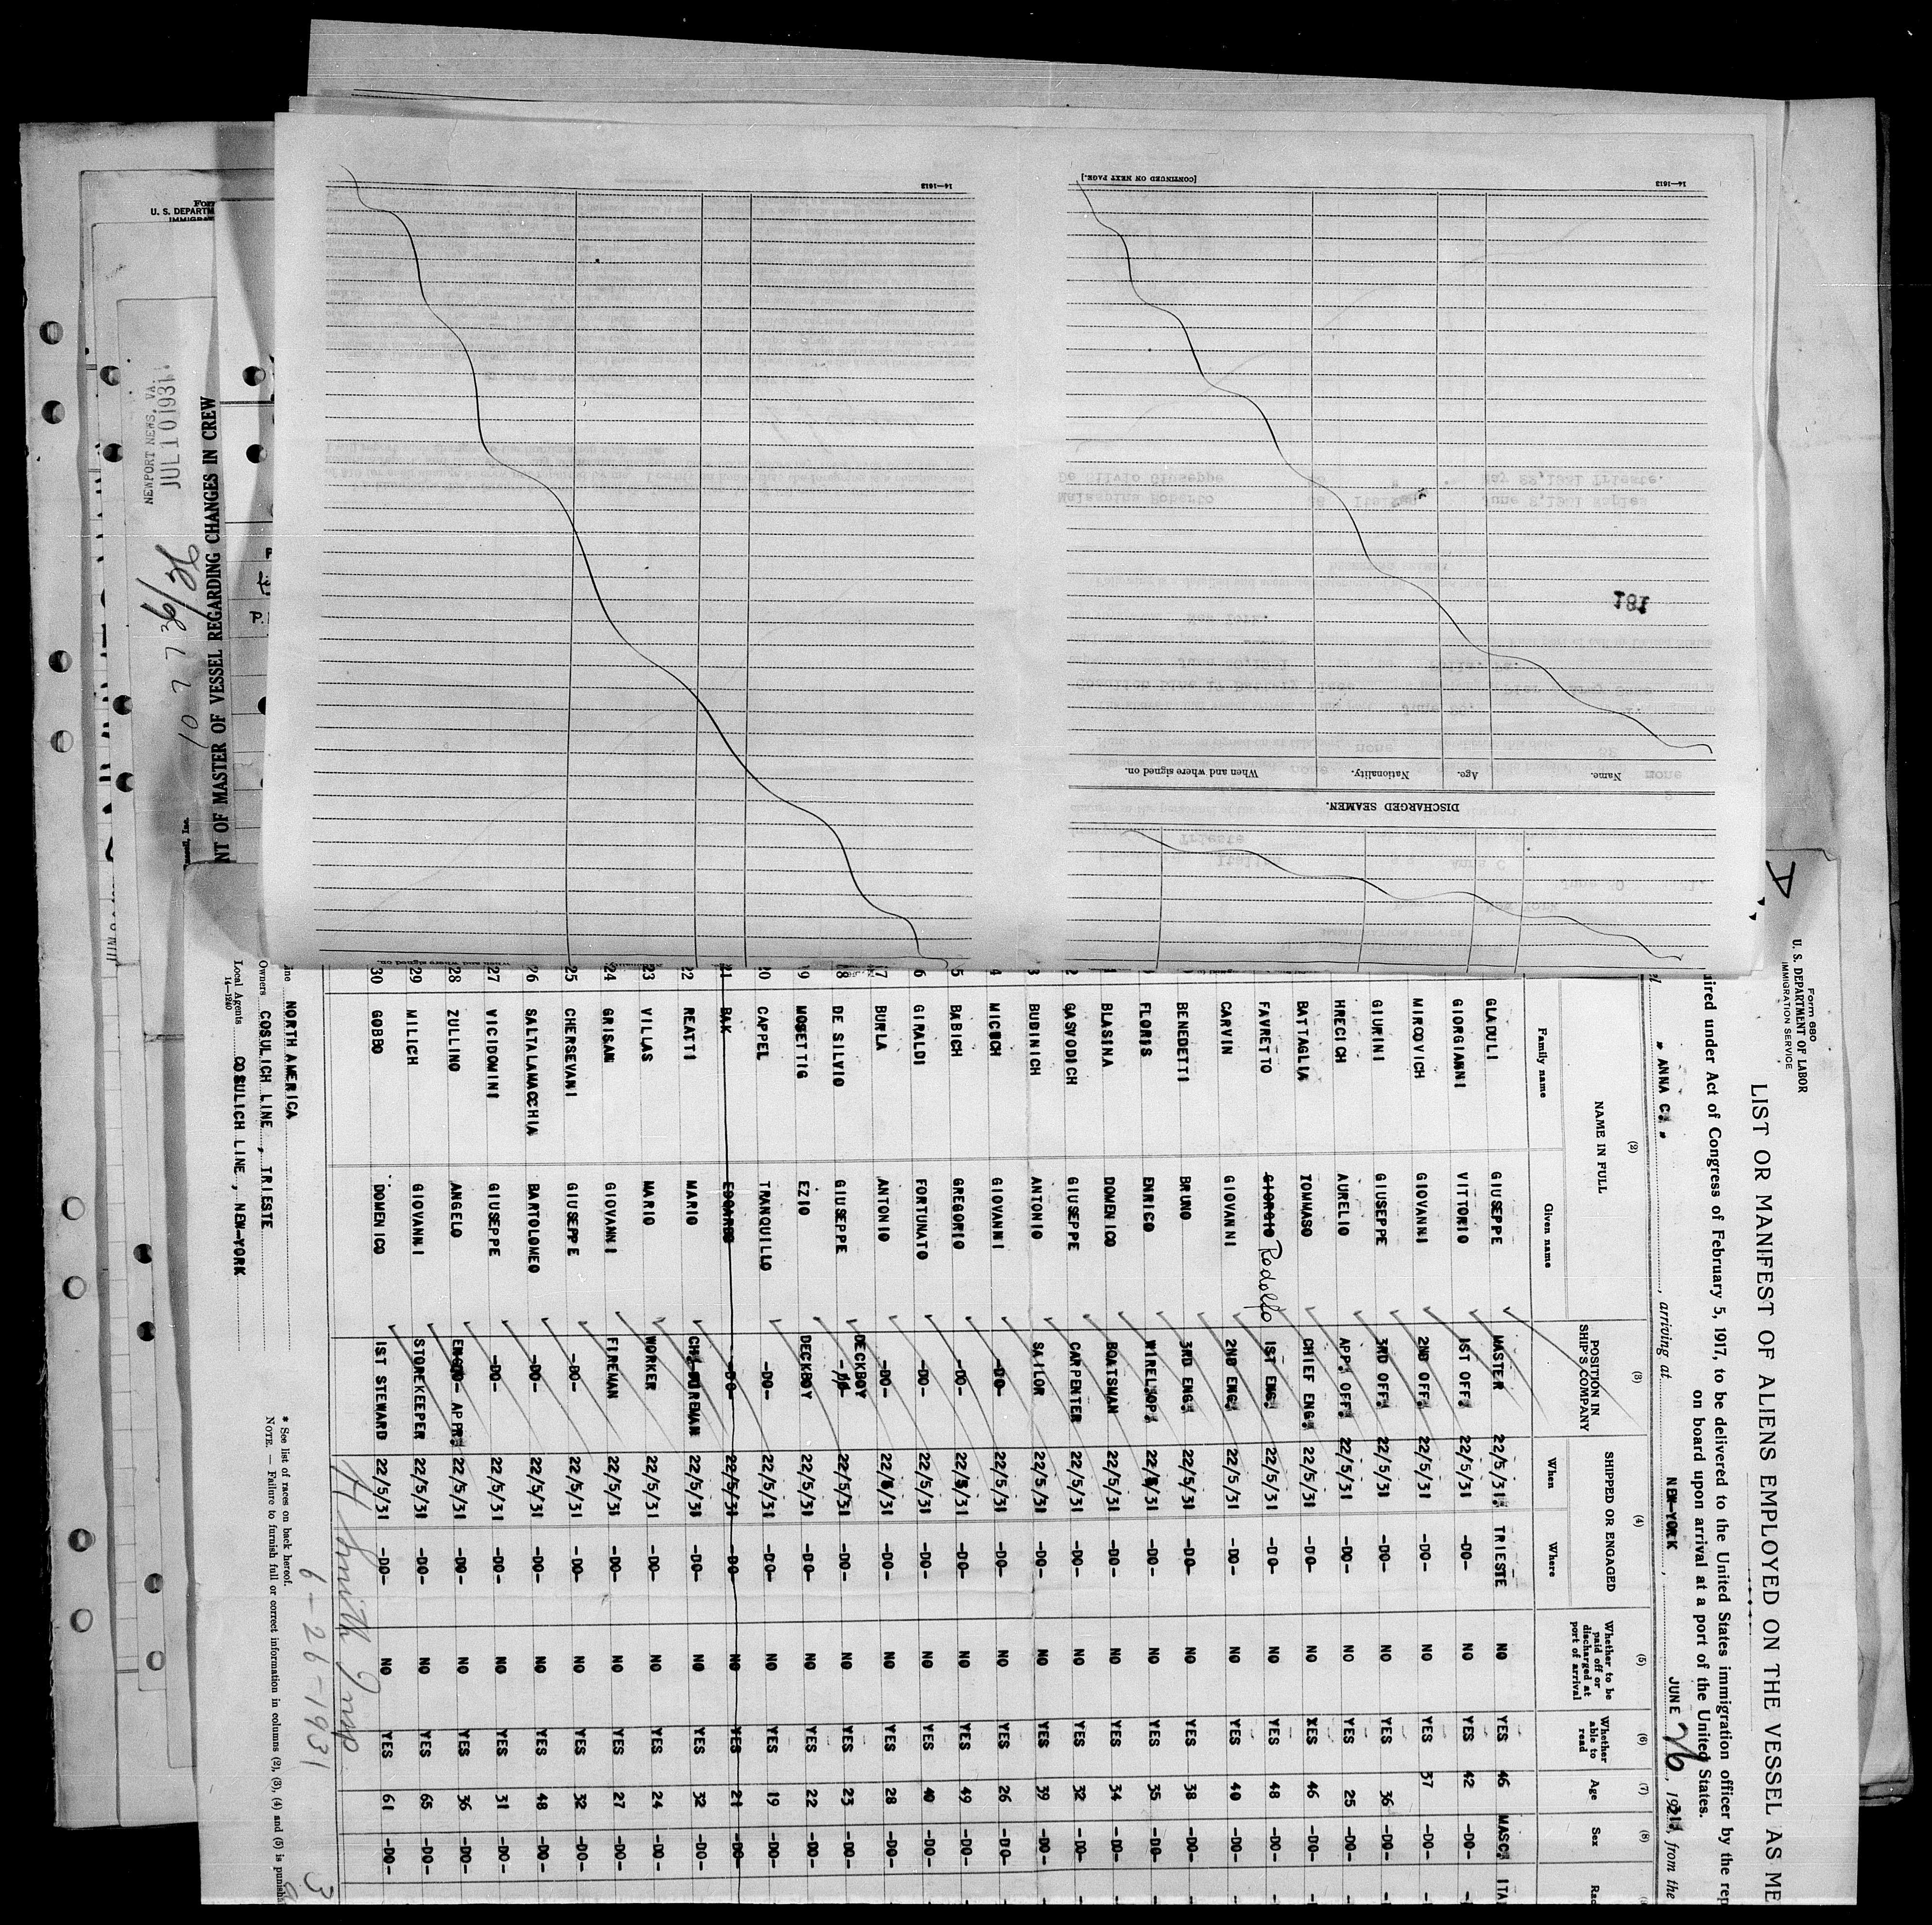 Form 680
U. S. DEPARTMENT OF LABOR
IMMIGRATION SERVICE
LIST OR MANIFEST OF ALIENS EMPLOYED ON THE VESSEL AS ME
uired under Act of Congress of February 5, 1917, to be delivered to the United States immigration officer by the rep
on board upon arrival at a port of the United States.
" ANNA C. " , arriving at NEW-YORK , JUNE 26 , 1931, from the
(2) (3) (4) (5) (6) (7) (8)
NAME IN FULL POSITION IN SHIP'S COMPANY SHIPPED OR ENGAGED Whether to be paid off or discharged at port of arrival Whether able to read Age Sex Rac
Family name Given name When Where
GLADULI GIUSEPPE MASTER 22/5/31 TRIESTE NO YES 46 MASC. ITA
GIORGIANNI VITTORIO 1ST OFF. 22/5/31 -DO- NO YES 42 -DO-
MIRCOVICH GIOVANNI 2ND OFF. 22/5/31 -DO- NO YES 37 -DO-
GIURINI GIUSEPPE 3RD OFF. 22/5/31 -DO- NO YES 36 -DO-
HRECICH AURELIO APP. OFF. 22/5/31 -DO- NO YES 25 -DO-
BATTAGLIA TOMMASO CHIEF ENG. 22/5/31 -DO- NO YES 46 -DO-
FAVRETTO GIORGIO Rodolfo 1ST ENG. 22/5/31 -DO- NO YES 48 -DO-
CARVIN GIOVANNI 2ND ENG. 22/5/31 -DO- NO YES 40 -DO-
BENEDETTI BRUNO 3RD ENG. 22/5/31 -DO- NO YES 38 -DO-
FLORIS ENRICO WIREL.OP. 22/5/31 -DO- NO YES 35 -DO-
BLASINA DOMENICO BOATSMAN 22/5/31 -DO- NO YES 34 -DO-
2 GASVODICH GIUSEPPE CARPENTER 22/5/31 -DO- NO YES 32 -DO-
3 BUDINICH ANTONIO SAILOR 22/5/31 -DO- NO YES 39 -DO-
4 MICUCH GIOVANNI -DO- 22/5/31 -DO- NO YES 26 -DO-
5 BABICH GREGORIO -DO- 22/5/31 -DO- NO YES 49 -DO-
6 GIRALDI FORTUNATO -DO- 22/5/31 -DO- NO YES 40 -DO-
17 BURLA ANTONIO -DO- 22/5/31 -DO- NO YES 28 -DO-
18 DE SILVIO GIUSEPPE DECKBOY 22/5/31 -DO- NO YES 23 -DO-
19 MOSETTIG EZIO DECKBOY 22/5/31 -DO- NO YES 22 -DO-
20 CAPPEL TRANQUILLO -DO- 22/5/31 -DO- NO YES 19 -DO-
21 BAK EDGARDO -DO- 22/5/31 -DO- NO YES 21 -DO-
22 REATTI MARIO CH.FIREMAN 22/5/31 -DO- NO YES 32 -DO-
23 VILLAS MARIO WORKER 22/5/31 -DO- NO YES 24 -DO-
24 GRISAN GIOVANNI FIREMAN 22/5/31 -DO- NO YES 27 -DO-
25 CHERSEVANI GIUSEPPE -DO- 22/5/31 -DO- NO YES 32 -DO-
26 SALTALAMACCHIA BARTOLOMEO -DO- 22/5/31 -DO- NO YES 48 -DO-
27 VICIDOMINI GIUSEPPE -DO- 22/5/31 -DO- NO YES 31 -DO-
28 ZULLINO ANGELO APPR. 22/5/31 -DO- NO YES 36 -DO-
29 MILICH GIOVANNI STOREKEEPER 22/5/31 -DO- NO YES 65 -DO-
30 GOBBO DOMENICO 1ST STEWARD 22/5/31 -DO- NO YES 61 -DO-
H Smith Insp
6-26-1931
ine NORTH AMERICA
Owners COSULICH LINE , TRIESTE
Local Agents COSULICH LINE , NEW-YORK
14—1240
* See list of races on back hereof.
NOTE. — Failure to furnish full or correct information in columns (2), (3), (4) and (5) is punish
[CONTINUED ON NEXT PAGE.]
14—1613
14—1613
DISCHARGED SEAMEN.
Name. Age. Nationality. When and where signed on.
181
When and where signed on.
NT OF MASTER OF VESSEL REGARDING CHANGES IN CREW
NEWPORT NEWS, VA.
JUL 10 1931
Form
U. S. DEPARTM
IMMIGRAT